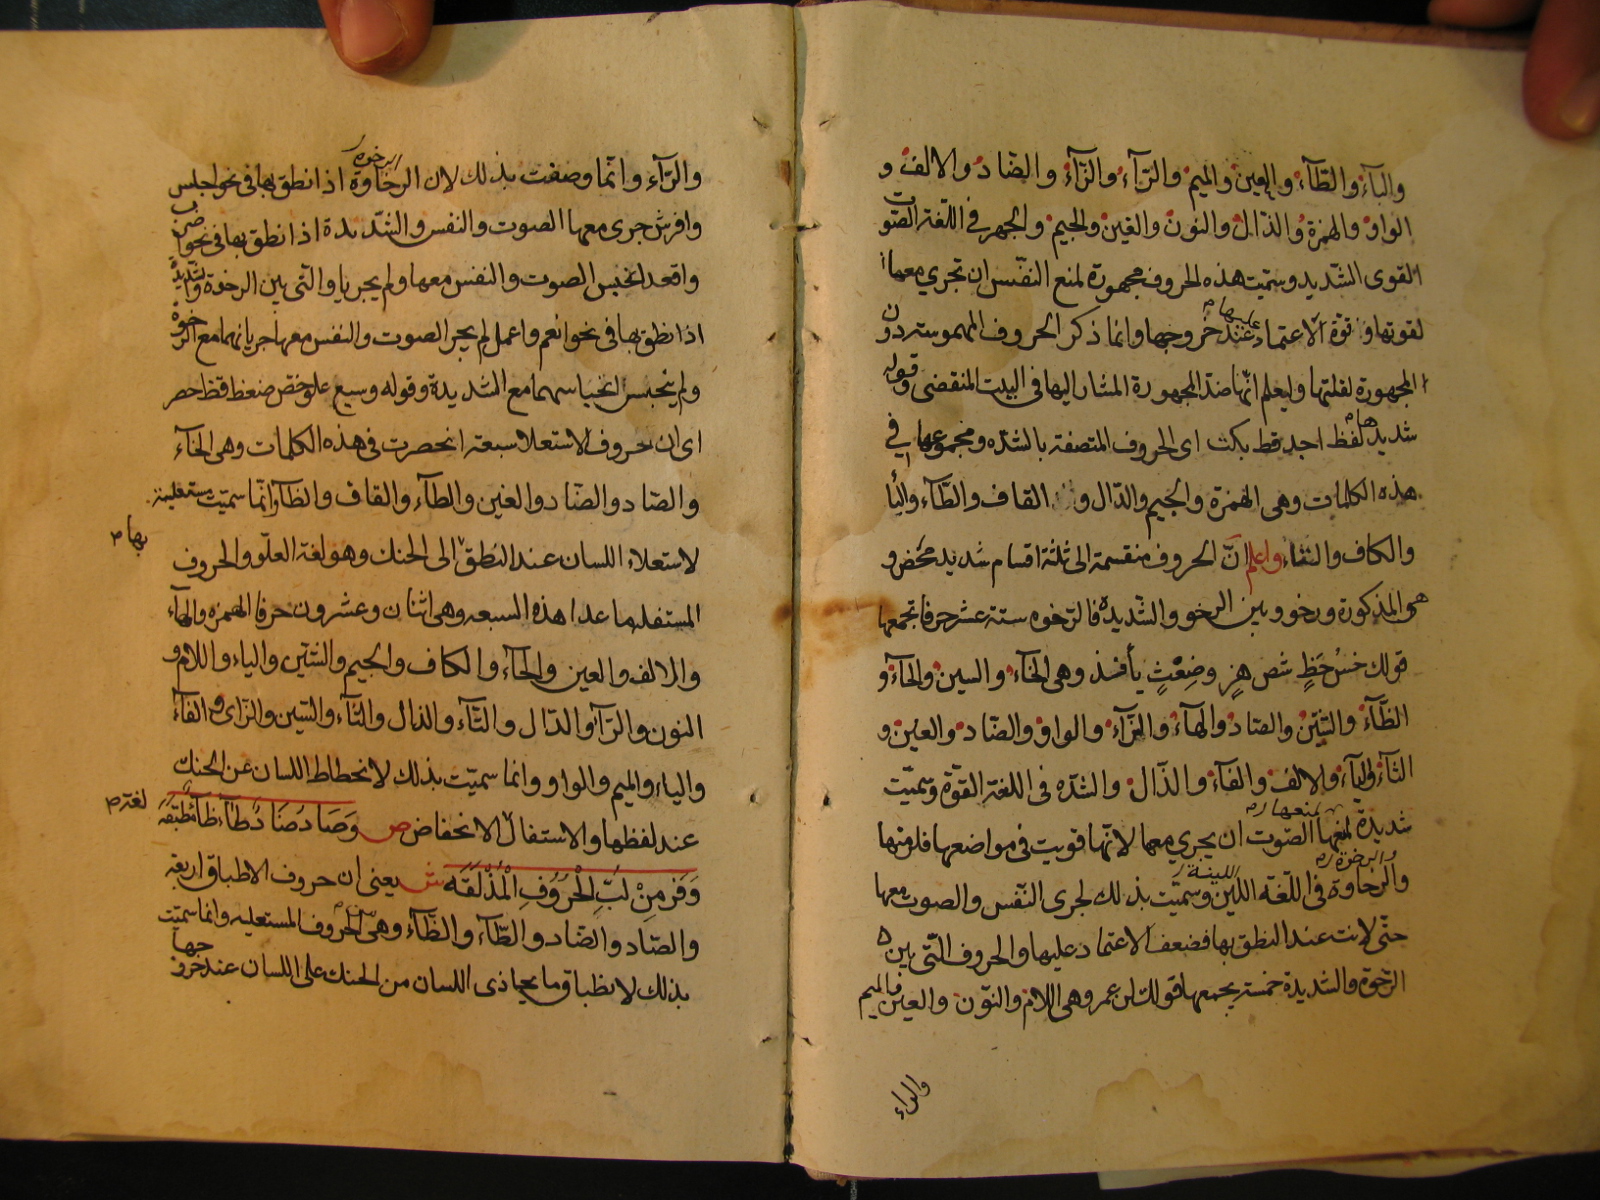 والباء والظاء والعين والميم والزاء والراء والضاد والالف و
الواو والهمزة والذال والنون والغين والجيم والجهر في اللغة الصوت
القوى الشديد وسميت هذه الحروف مجهورة لمنع النفس ان تجري معها
لقوتها وقوة الاعتماد عليها م عند خروجها وانما ذكر الحروف المهموسة دون
المجهورة لقلتها وليعلم انها ضد المجهورة المشار اليها في البيت المنقضى وقوله
شديدها لفظ اجد قط بكت اى الحروف المتصفة بالشده ومجموعها في
هذه الكلمات وهى الهمزة والجيم والدال و القاف والطآء والبا
والكاف والتاء واعلم ان الحروف منقسمة الى ثلثة اقسام شديد محض و
هو المذكورة ورخو وبين الرخو والشديدة فالرخوه ستة عشر حرفا تجمعها
قولك خس حظ شص هز وضغث يأفذ وهى الخآء والسين والحآء و
الظآء والشين والصاد والهآء والزآء والواو والضاد والغين و
الثآء واليآء والالف والفآء والذال والشده فى اللغة القوة وسميت
شديدة لمنعها الصوت ان يجري معها لانها قويت في مواضعها فلزمتها
والرخاوة والرخوة م في اللغة اللين اللينة وسميت بذلك لجرى النفس والصوت معها
حتى لانت عند النطق بها فضعف الاعتماد عليها والحروف التى بين
الرخوة والشديدة خمسة يجمعها قولك لن عمر وهى اللام والنون والعين والميم
والراء
والرآء وانما وصفت بذلك لان الرخاوة الرخوة اذا نطق بها فى نحو اجلس
وافرش جرى معها الصوت والنفس والشديدة اذا نطق بها فى نحو اضرب
واقعد انحبس الصوت والنفس معها ولم يجريا والتى بين الرخوة والشديدة
اذا نطق بها فى نحو انعم واعمل لم يجر الصوت والنفس معها جريانهما مع الرخوة
ولم ينحبس انحباسهما مع الشديدة وقوله وسبع علو خص ضغط قظ حصر
اى ان حروف الاستعلا سبعة انحصرت فى هذه الكلمات وهى الخآء
والصاد والضاد والغين والطآء والقاف والظآء وانما سميت مستعلية
بها م
لاستعلاء اللسان عند النطق الى الحنك وهو لغة العلو والحروف
المستفله ما عدا هذه السبعه وهى اثنان وعشرون حرفا الهمزه والهآء
والالف والعين والحآء والكاف والجيم والشين والياء واللام و
النون والرآء والدال والتآء والذال والثآء والسين والزاى والفآء
والباء والميم والواو وانما سميت بذلك لانحطاط اللسان عن الحنك
لغة م
عند لفظها والاستفال الانخفاض ص وَصَاد ضَاد طَآء ظَآء مطبقَة
وَفَر مِنْ لُبِّ الْحُرُوفِ الْمُذْلَقَه ش يعنى ان حروف الاطباق اربعة
والصاد والضاد والطآء والظآء وهى من الحروف المستعليه وانما سميت
بذلك لانطباق ما يحاذى اللسان من الحنك على اللسان عند خروجها